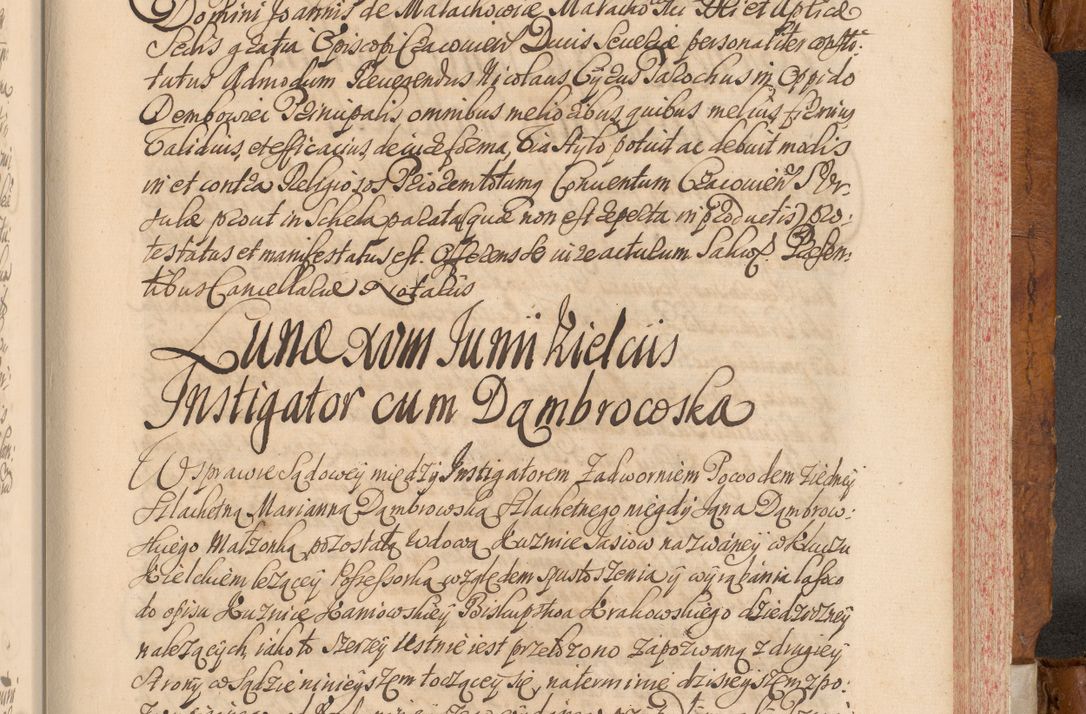 Domini Joannis de Małachowice Małachowski Dei et Aplicæ
Sedis gratia Episcopi Cracovien Ducis Severiæ personaliter consti-
tutus Admodum Reverendus Nicolaus Cyrus Parochus in Oppido
Dembowiec Principalis omnibus melioribus quibus melius firmius
validius, et efficacius, de iure forma, via stylo potuit ac debuit modis
in et contra Religiosos Priorem totumq Conventum Cracovien S
sulæ prout in Scheda parata (quæ non est reperta in productis) pro-
testatus et manifestatus est. Offerens se in reactulum Salva. Præsen-
tibus Cancellariæ Notariis
Lunæ xvm Junii Kielciis
Instigator cum Dąmbrowska
W sprawie sądowey między Instigatorem zadworniem Powodem z iedney
szlachetną Marianną Dąmbrowską szlachetnego niegdy Jana Dąmbrow-
skiego Małżonką, pozostałą wdową kuznice Jasiow nazwáney w kluczu
Kielckiem leżącey Possessorką względem spustoszenia y wyrąbania lasow
do opisu kuznice Haniowskiey Biskupstwa Krakowskiego dziedziczney
należących, iako to szerzey ustnie iest przełożono zapozwaną z drugiey
Strony w sądzie ninieyszem toczącey się, na terminie dzisieyszem zpo-